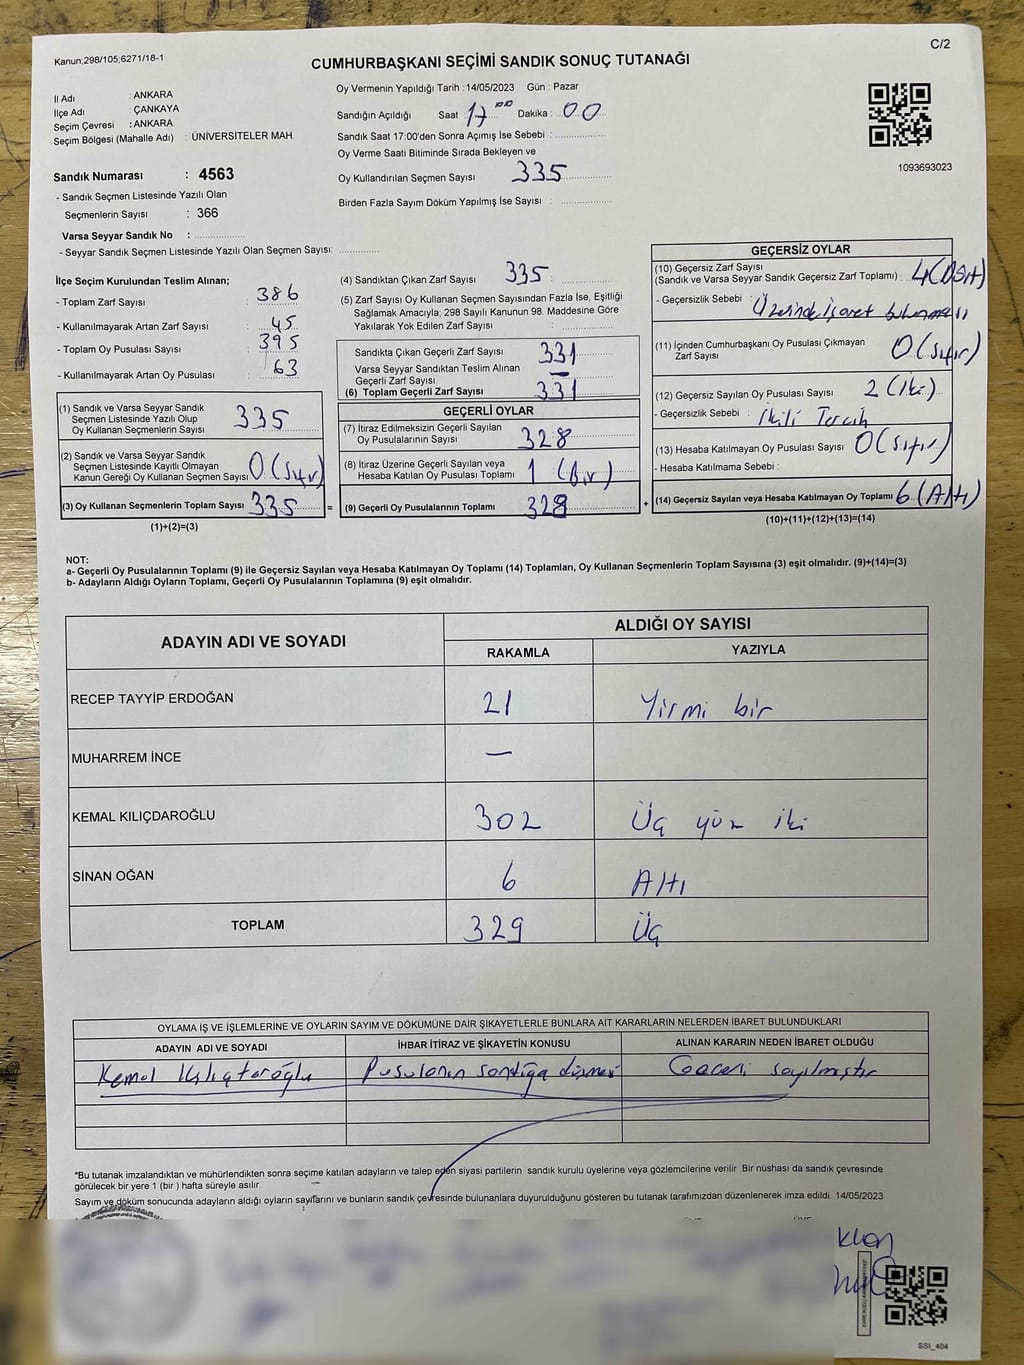 C/2
Kanun;298/105;6271/18-1
CUMHURBAŞKANI SEÇİMİ SANDIK SONUÇ TUTANAĞI
İl Adı : ANKARA
İlçe Adı : ÇANKAYA
Seçim Çevresi : ANKARA
Seçim Bölgesi (Mahalle Adı) : ÜNİVERSİTELER MAH.
Sandık Numarası : 4563
- Sandık Seçmen Listesinde Yazılı Olan
Seçmenlerin Sayısı : 366
Varsa Seyyar Sandık No :
- Seyyar Sandık Seçmen Listesinde Yazılı Olan Seçmen Sayısı:
Oy Vermenin Yapıldığı Tarih : 14/05/2023 Gün : Pazar
Sandığın Açıldığı Saat : 17 00 Dakika : 00
Sandık Saat 17:00'den Sonra Açımış İse Sebebi :
Oy Verme Saati Bitiminde Sırada Bekleyen ve
Oy Kullandırılan Seçmen Sayısı 335
Birden Fazla Sayım Döküm Yapılmış İse Sayısı :
1093693023
İlçe Seçim Kurulundan Teslim Alınan;
- Toplam Zarf Sayısı : 386
- Kullanılmayarak Artan Zarf Sayısı : 45
- Toplam Oy Pusulası Sayısı : 395
- Kullanılmayarak Artan Oy Pusulası : 63
(1) Sandık ve Varsa Seyyar Sandık
Seçmen Listesinde Yazılı Olup
Oy Kullanan Seçmenlerin Sayısı 335
(2) Sandık ve Varsa Seyyar Sandık
Seçmen Listesinde Kayıtlı Olmayan
Kanun Gereği Oy Kullanan Seçmen Sayısı 0 (Sıfır)
(3) Oy Kullanan Seçmenlerin Toplam Sayısı 335
(1)+(2)=(3)
=
(4) Sandıktan Çıkan Zarf Sayısı 335
(5) Zarf Sayısı Oy Kullanan Seçmen Sayısından Fazla İse, Eşitliği
Sağlamak Amacıyla; 298 Sayılı Kanunun 98. Maddesine Göre
Yakılarak Yok Edilen Zarf Sayısı :
Sandıkta Çıkan Geçerli Zarf Sayısı 331
Varsa Seyyar Sandıktan Teslim Alınan
Geçerli Zarf Sayısı —
(6) Toplam Geçerli Zarf Sayısı 331
GEÇERLİ OYLAR
(7) İtiraz Edilmeksizin Geçerli Sayılan
Oy Pusulalarının Sayısı 328
(8) İtiraz Üzerine Geçerli Sayılan veya
Hesaba Katılan Oy Pusulası Toplamı 1 (Bir)
(9) Geçerli Oy Pusulalarının Toplamı
+
GEÇERSİZ OYLAR
(10) Geçersiz Zarf Sayısı
(Sandık ve Varsa Seyyar Sandık Geçersiz Zarf Toplamı) : 4 (Dört)
- Geçersizlik Sebebi : Üzerinde işaret bulunması
(11) İçinden Cumhurbaşkanı Oy Pusulası Çıkmayan
Zarf Sayısı 0 (Sıfır)
(12) Geçersiz Sayılan Oy Pusulası Sayısı 2 (İki)
- Geçersizlik Sebebi : İkili Tercih
(13) Hesaba Katılmayan Oy Pusulası Sayısı 0 (Sıfır)
- Hesaba Katılmama Sebebi :
(14) Geçersiz Sayılan veya Hesaba Katılmayan Oy Toplamı 6 (Altı)
(10)+(11)+(12)+(13)=(14)
NOT:
a- Geçerli Oy Pusulalarının Toplamı (9) ile Geçersiz Sayılan veya Hesaba Katılmayan Oy Toplamı (14) Toplamları, Oy Kullanan Seçmenlerin Toplam Sayısına (3) eşit olmalıdır. (9)+(14)=(3)
b- Adayların Aldığı Oyların Toplamı, Geçerli Oy Pusulalarının Toplamına (9) eşit olmalıdır.
ADAYIN ADI VE SOYADI ALDIĞI OY SAYISI
RAKAMLA YAZIYLA
RECEP TAYYİP ERDOĞAN 21 Yirmi bir
MUHARREM İNCE —
KEMAL KILIÇDAROĞLU 302 Üç yüz iki
SİNAN OĞAN 6 Altı
TOPLAM 329 Üç
OYLAMA İŞ VE İŞLEMLERİNE VE OYLARIN SAYIM VE DÖKÜMÜNE DAİR ŞİKAYETLERLE BUNLARA AİT KARARLARIN NELERDEN İBARET BULUNDUKLARI
ADAYIN ADI VE SOYADI İHBAR İTİRAZ VE ŞİKAYETİN KONUSU ALINAN KARARIN NEDEN İBARET OLDUĞU
Kemal Kılıçtaroğlu Pusulanın sandığa düşmesi Geçerli sayılmıştır
*Bu tutanak imzalandıktan ve mühürlendikten sonra seçime katılan adayların ve talep eden siyasi partilerin sandık kurulu üyelerine veya gözlemcilerine verilir. Bir nüshası da sandık çevresinde
görülecek bir yere 1 (bir ) hafta süreyle asılır.
Sayım ve döküm sonucunda adayların aldığı oyların sayılarını ve bunların sandık çevresinde bulunanlara duyurulduğunu gösteren bu tutanak tarafımızdan düzenlenerek imza edildi. 14/05/2023
SSİ_404